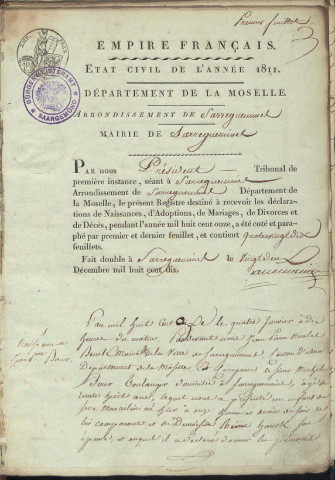 Premier feuillet
EMPIRE FRANÇAIS.
ETAT CIVIL DE L'ANNÉE 1811.
DÉPARTEMENT DE LA MOSELLE.
ARRONDISSEMENT DE Sarreguemines
MAIRIE DE Sarreguemines
BÜRGERMEISTERAMT
SAARGEMÜND
PAR NOUS Président Tribunal de
première instance, séant à Sarreguemines
Arrondissement de Sarreguemines Département de
la Moselle, le présent Registre destiné à recevoir les déclara-
tions de Naissances, d'Adoptions, de Mariages, de Divorces et
de Décès, pendant l'année mil huit cent onze, a été coté et para-
phé par premier et dernier feuillet, et contient quatrevingtdix
feuillets.
Fait double à Sarreguemines le vingt deux
Décembre mil huit cent dix.
Naissance de
Bour
L'an mil huit cent onze le quatre janvier à dix
heures du matin Pardevant nous Jean Pierre Nicolas
Maire de la Ville de Sarreguemines
Département de la Moselle est Comparu le Sieur
Bour Boulanger domicilié à Sarreguemines, âgé de
trente huit ans, lequel nous a présenté un enfant du
sexe Masculin né hier à onze heures du soir de
lui comparant et de son
épouse et auquel il a déclaré donner les prénoms